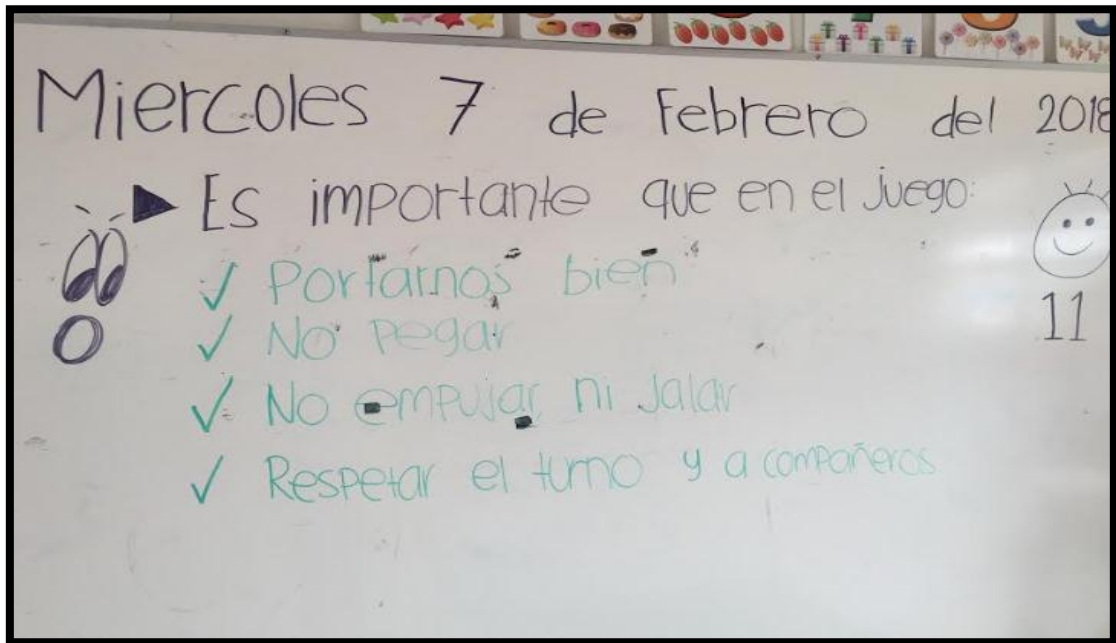 Miercoles 7 de Febrero del 2018
Es importante que en el juego:
✓ Portarnos bien
✓ No pegar
✓ No empujar ni Jalar
✓ Respetar el turno y a compañeros
0
11